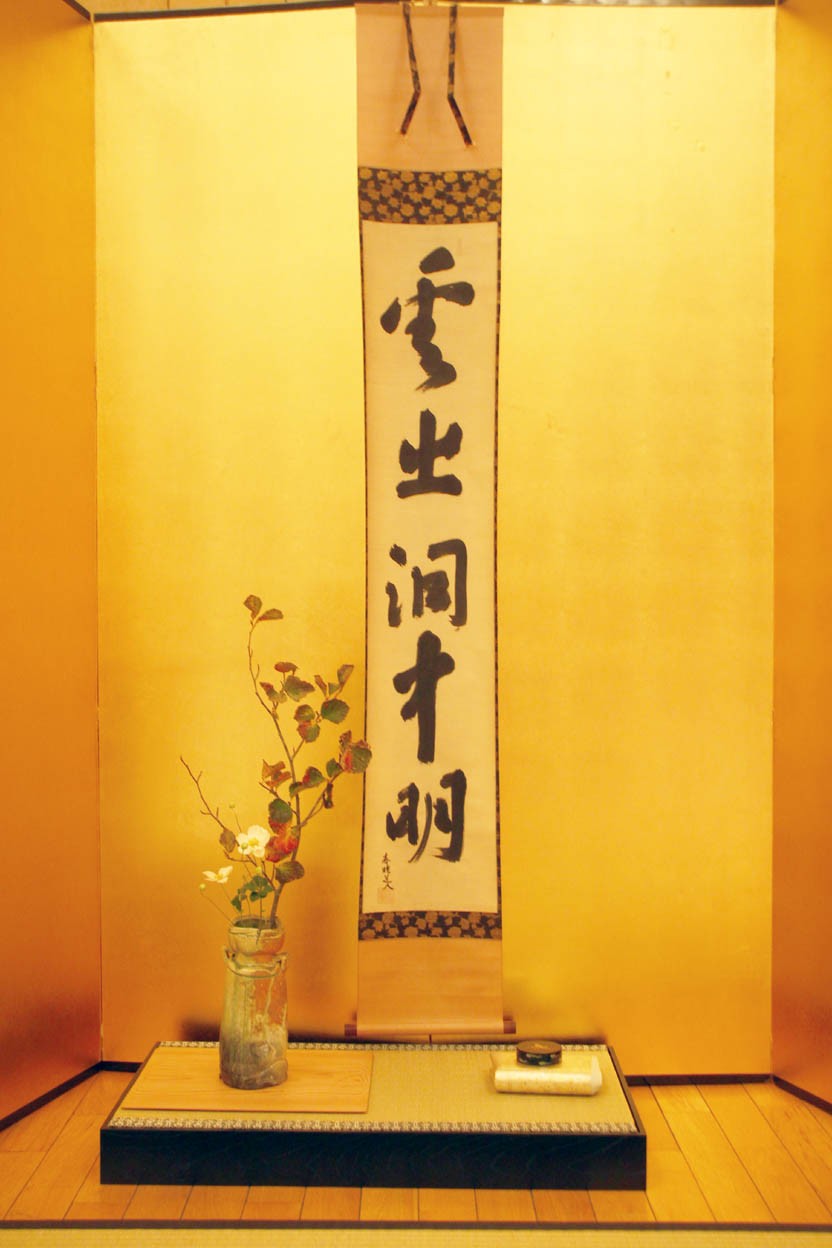 雲出洞中明